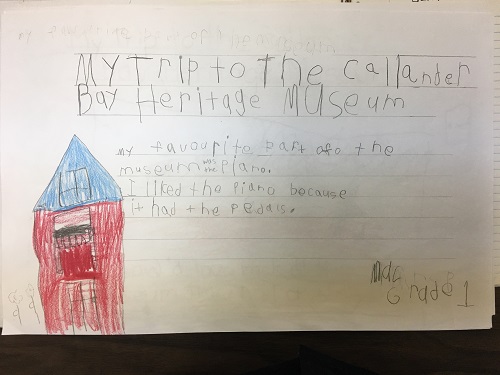 My Trip to The Callander
Bay Heritage Museum
my favourite part ofo the
museum was the Piano.
I liked the piano because
it had the pedals.
Grade 1